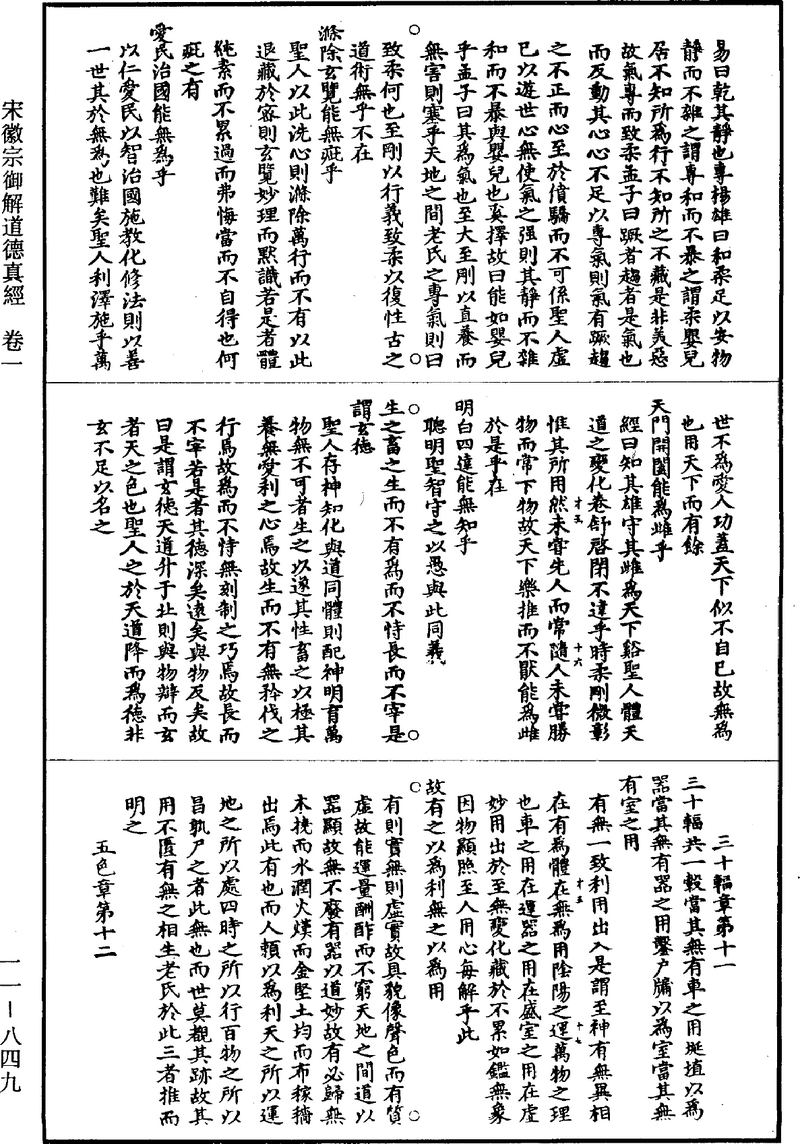 易曰乾其靜也專揚雄曰和柔足以安物
靜而不雜之謂專和而不暴之謂柔嬰兒
居不知所爲行不知所之不藏是非美惡
故氣專而致柔孟子曰蹶者趨者是氣也
而反動其心心不足以專氣則氣有蹶趨
之不正而心至於僨驕而不可係聖人虛
已以遊世心無使氣之强則其靜而不雜
和而不暴與嬰兒也奚擇故曰能如嬰兒
乎孟子曰其爲氣也至大至剛以直養而
無害則塞乎天地之間老氏之專氣則曰
致柔何也至剛以行義致柔以復性古之
道術無乎不在
滌除玄覽能無疵乎
聖人以此洗心則滌除萬行而不有以此
退藏於密則玄覽妙理而默識若是者體
純素而不累過而弗悔當而不自得也何
疵之有
愛民治國能無爲乎
以仁愛民以智治國施教化修法則以善
一世其於無爲也難矣聖人利澤施乎萬
世不爲愛人功蓋天下似不自已故無爲
也用天下而有餘
天門開闔能爲雌乎
經曰知其雄守其雌爲天下谿聖人體天
道之變化卷舒啓閉不違乎時柔剛微彰
惟其所用然未嘗先人而常隨人未嘗勝
物而常下物故天下樂推而不猒能爲雌
於是乎在
明白四達能無知乎
聰明聖智守之以愚與此同義
生之畜之生而不有爲而不恃長而不宰是
謂玄德
聖人存神知化與道同體則配神明育萬
物無不可者生之以遂其性畜之以極其
養無愛利之心焉故生而不有無矜伐之
行焉故爲而不恃無刻制之巧焉故長而
不宰若是者其德深矣遠矣與物反矣故
曰是謂玄德天道升于北則與物辯而玄
者天之色也聖人之於天道降而爲德非
玄不足以名之
三十輻章第十一
三十輻共一轂當其無有車之用埏埴以爲
器當其無有器之用鑿户牖以爲室當其無
有室之用
有無一致利用出入是謂至神有無異相
在有爲體在無爲用陰陽之運萬物之理
也車之用在運器之用在盛室之用在虛
妙用出於至無變化藏於不累如鑑無象
因物顯照至人用心每解乎此
故有之以爲利無之以爲用
有則實無則虛實故具貌像聲色而有質
虛故能運量酬酢而不窮天地之間道以
器顯故無不廢有器以道妙故有必歸無
木撓而水潤火熯而金堅土均而布稼穡
出焉此有也而人頼以爲利天之所以運
地之所以處四時之所以行百物之所以
昌孰尸之者此無也而世莫覩其跡故其
用不匱有無之相生老氏於此三者推而
明之
五色章第十二
十五
十六
十五
十七
宋徽宗御解道德真經 卷一
一一－八四九